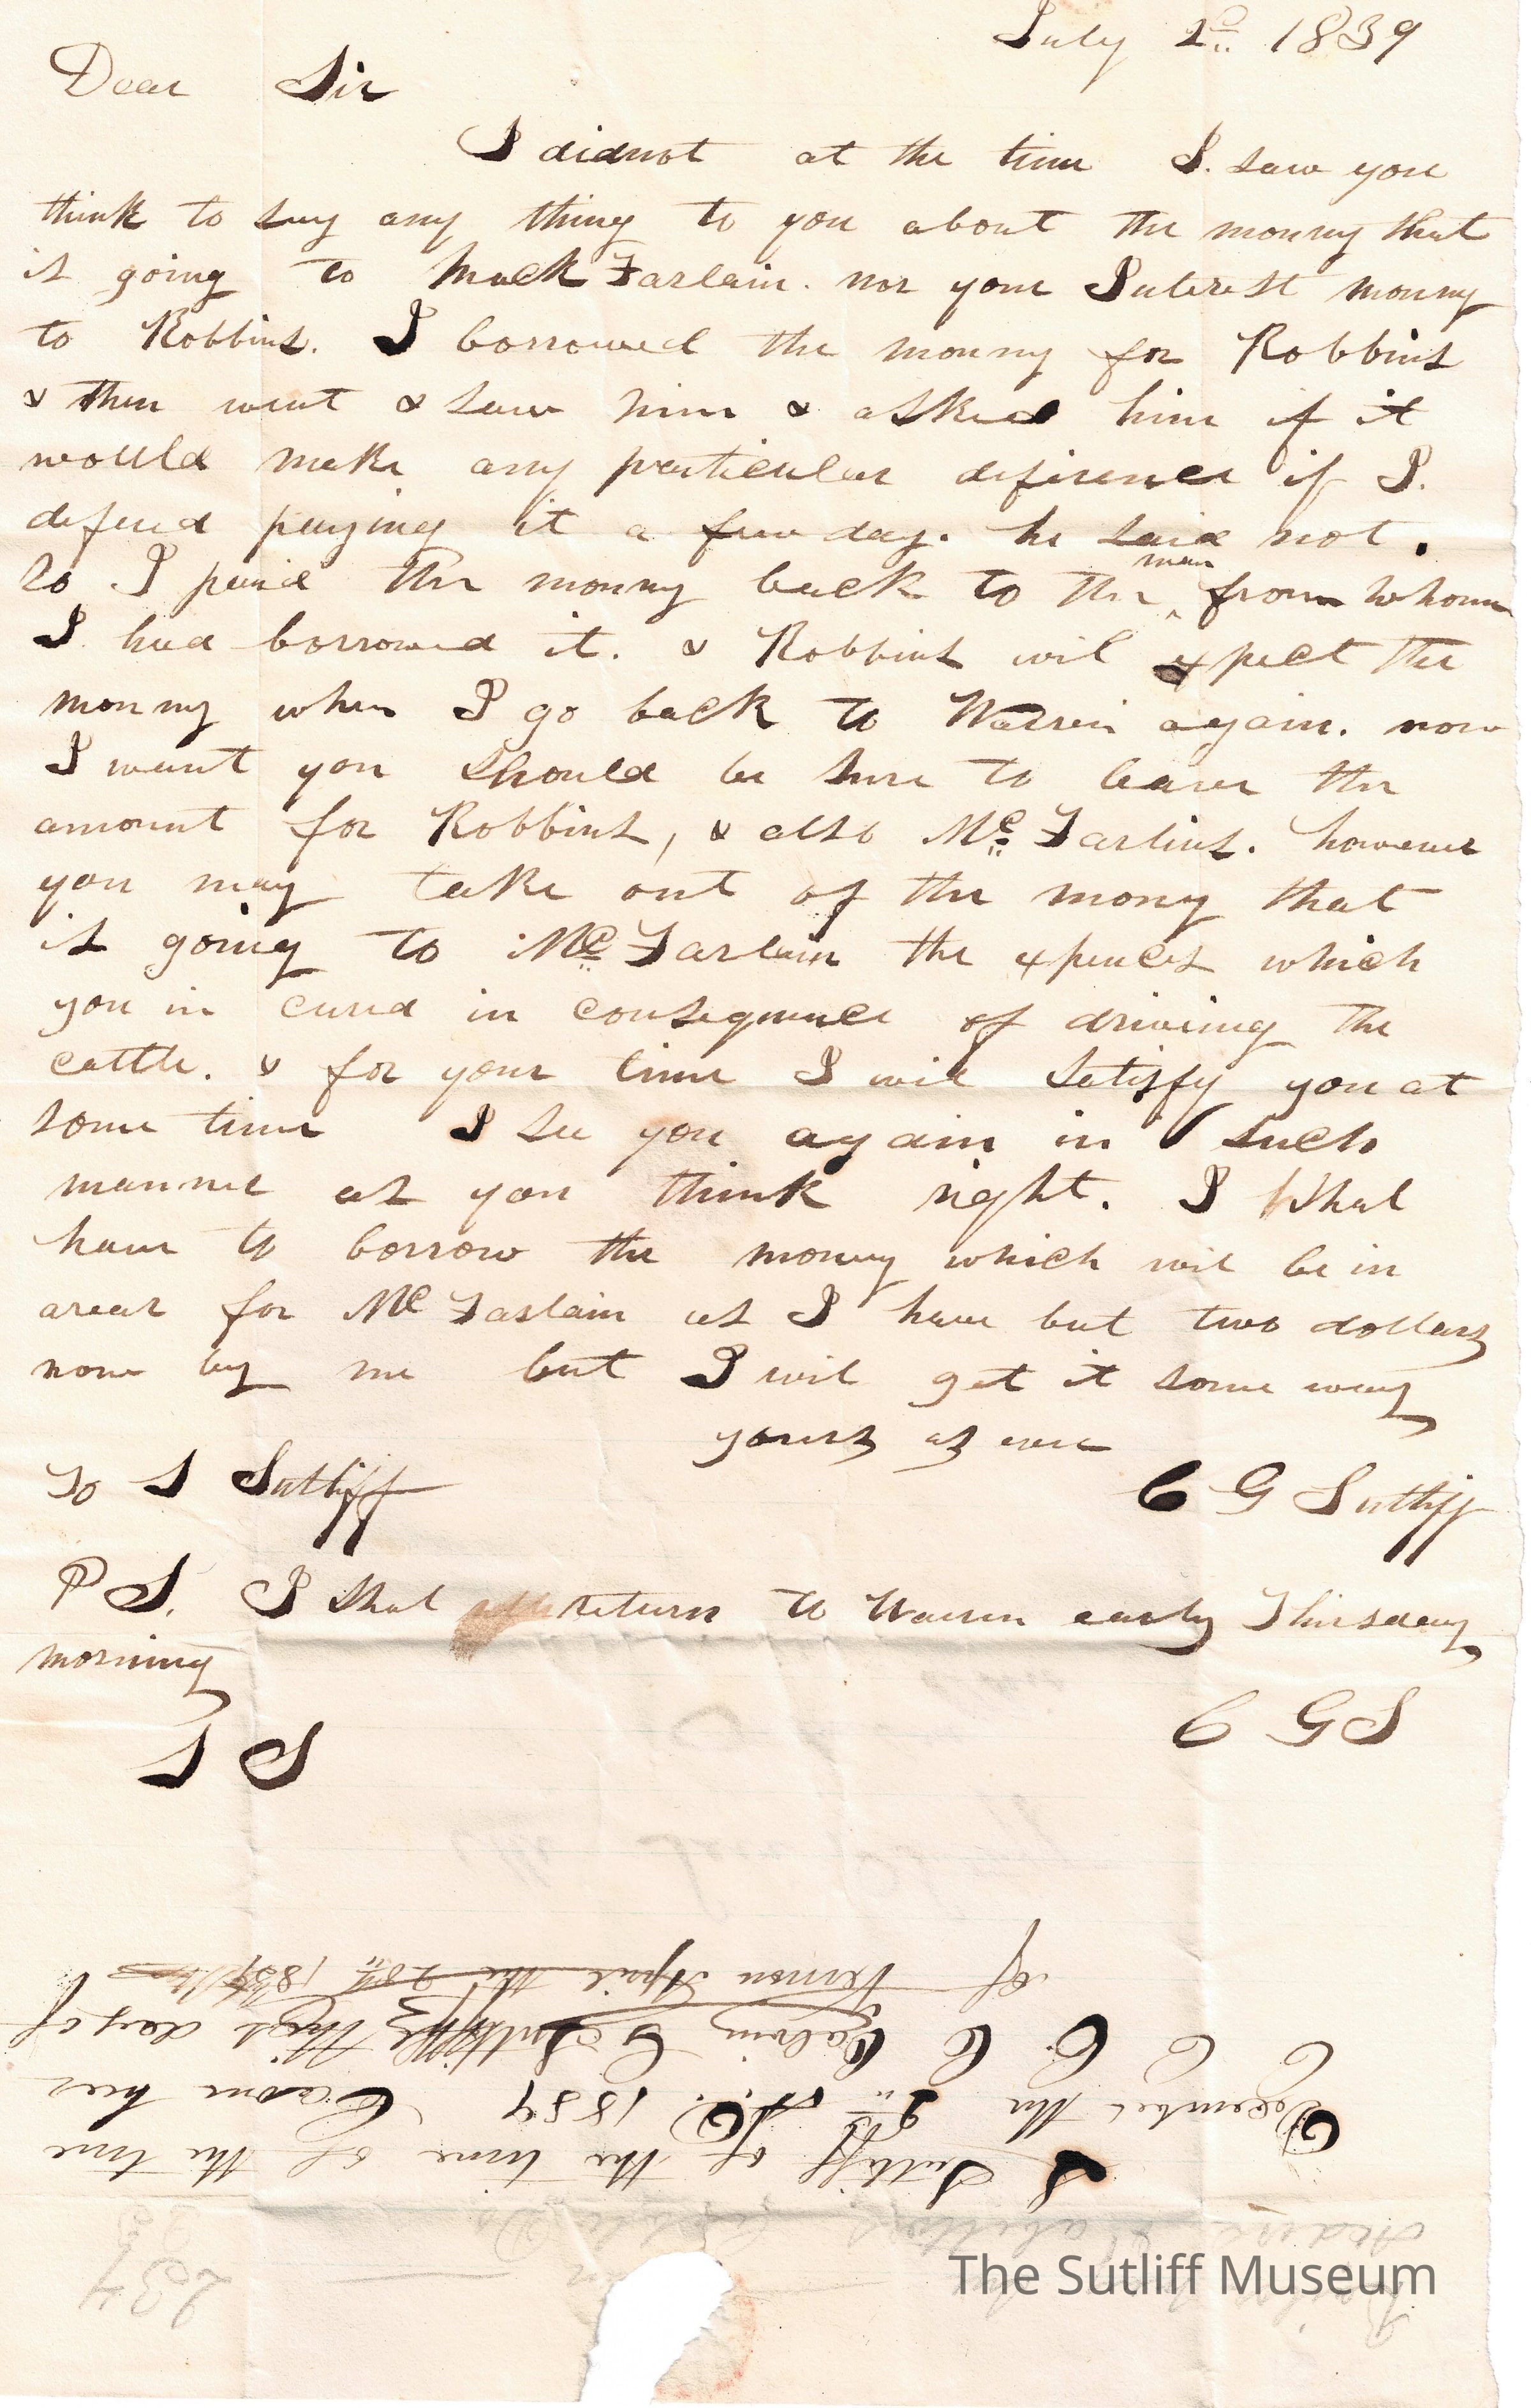 July 2d 1839
Dear Sir
I didnot at the time I. saw you
think to say any thing to you about the monny that
is going to Mack Farlain. nor your Interest monny
to Robbins. I borrowed the monny for Robbins
& then went & saw him & asked him if it
would make any particular difirence if I.
defered paying it a few days. he said not.
So I paid the monny back to the man from whom
I had borrowed it. & Robbins wil expect the
monny when I go back to Warren again. now
I want you should be sure to leave the
amount for Robbins, & also Mc Farlins. however
you may take out of the mony that
is going to Mc Farlain the expences which
you in cured in consequence of driveing the
cattle. & for your time I will Satisfy you at
some time I see you again in such
manner as you think right. I shal
have to borrow the money which wil be in
arear for Mc Farlain as I have but two dollars
now by me but I wil get it some way
yours as ever
To L Sutliff
C G Sutliff
P S. I shal return to Warren early Thirsday
morning
C G S
L S
Sutliff of the time of the time
December the A.D. 1839 Came here
C C C C Calvin G Sutliff this day of
of Vernon April the 28th
234
The Sutliff Museum